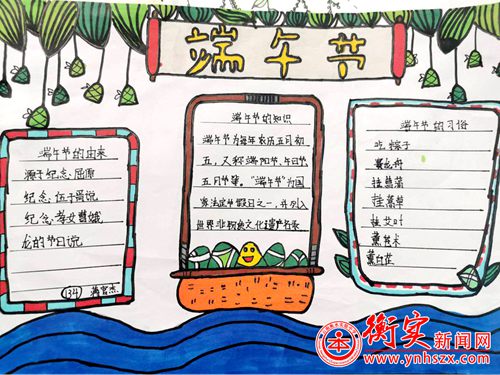 端午节
端午节的由来
源于纪念屈原
纪念伍子胥说
纪念孝女曹娥
龙的节日说
(134)
端午节的知识
端午节为每年农历五月初
五，又称端阳节，午日节
五月节等。“端午节”为国
家法定节假日之一，并列入
世界非物质文化遗产名录
端午节的习俗
吃粽子
赛龙舟
挂菖蒲
挂艾叶
薰苍术
薰白芷
衡实新闻网
www.ynhszx.com